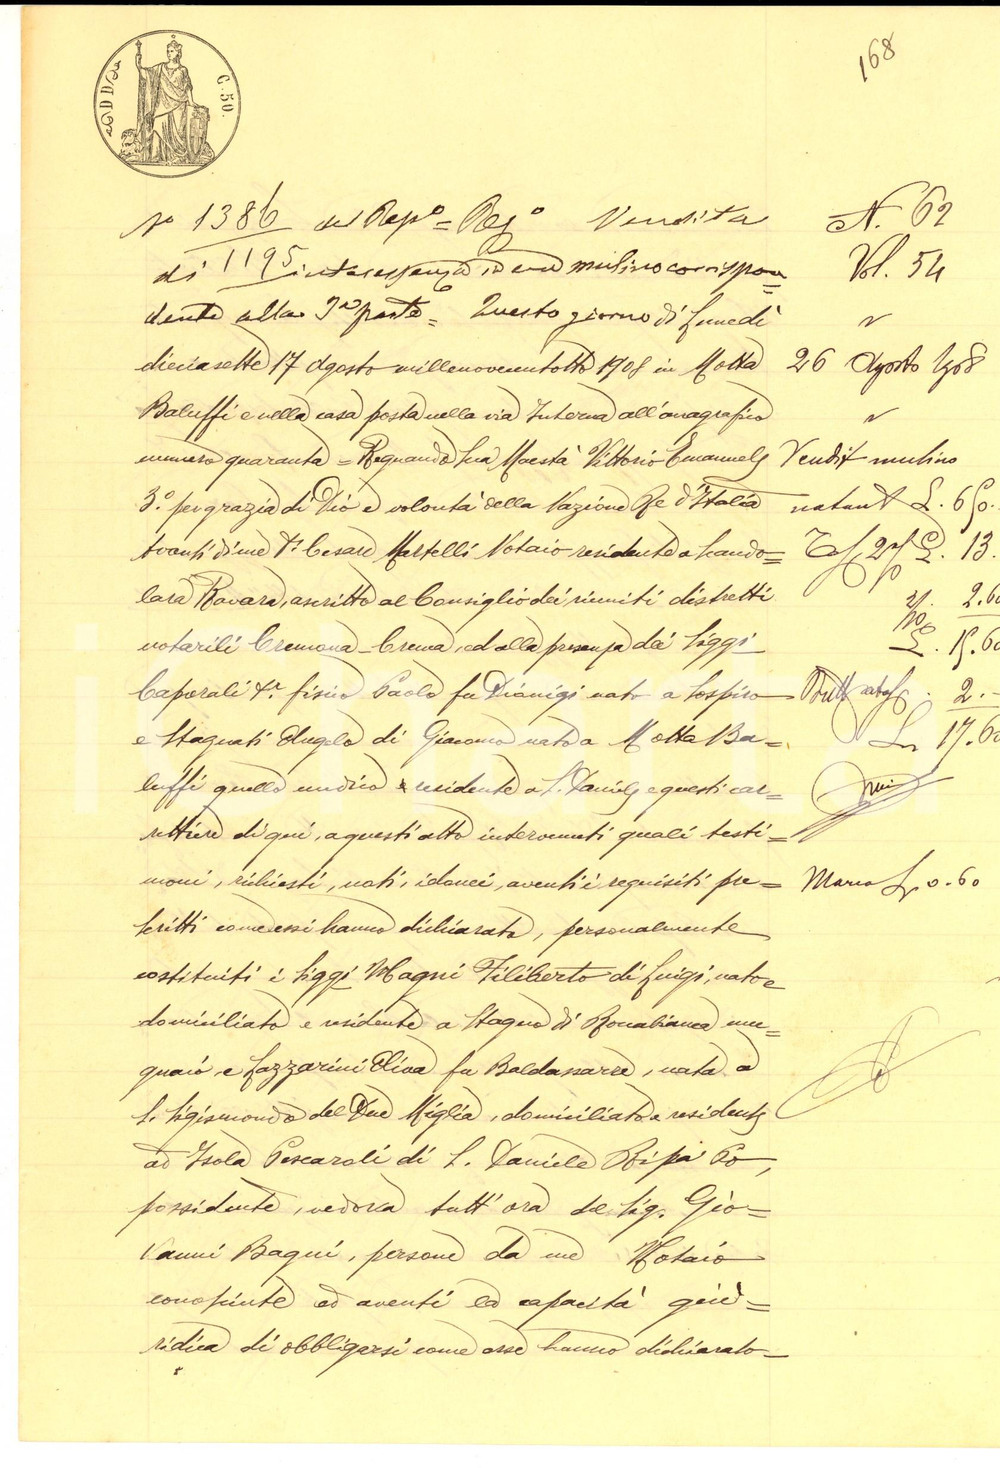 168
C. 50.
No 1386 del Repo = Rego Vendita
di 1195 interessenza in una mulino corrispon=
dente alla 3a parte = Questo giorno di Lunedì
dieciasette 17 Agosto millenovecentotto 1908 in Motta
Baluffi e nella casa posta nella via Interna all'anagrafico
numero quaranta = Regnando Sua Maestà Vittorio Emanuele
3.o per grazia di Dio e volontà della Nazione Re d'Italia
Avanti di me Dr Cesare Martelli Notaio residente a Scando=
lara Ravara, ascritto al Consiglio dei riuniti distretti
notarili Cremona - Crema, ed alla presenza dei Siggi
Caporali Dr fisico Paolo fu Dionigi nato a Sospiro
e Stagnati Angelo di Giacomo nato a Motta Ba=
luffi quello medico e residente a S. Daniele e questi car=
rettiere di qui, a questi atto intervenuti quali testi=
moni, richiesti, noti, idonei, aventi i requisiti pre=
scritti come essi hanno dichiarato, personalmente
costituiti i Siggi Magni Filiberto di Luigi, nato e
domiciliato e residente a Stagno di Roccabianca mu=
gnaio, e Lazzarini Diva fu Baldassarre, nata a
S. Sigismondo del Due Miglia, domiciliata e residente
ad Isola Pescaroli di S. Daniele Ripa Po,
possidente, vedova tutt'ora del Sig. Gio=
vanni Bagni, persone da me Notaio
conosciute ed aventi la capacità giu=
ridica di obbligarsi come esse hanno dichiarato=
N. 62
Vol. 54
"
26 Agosto 1908
"
Vendit mulino
natant L. 650.
L. 13.
2.60
L. 15.60
2.-
L. 17.60
Marca L. 0.60